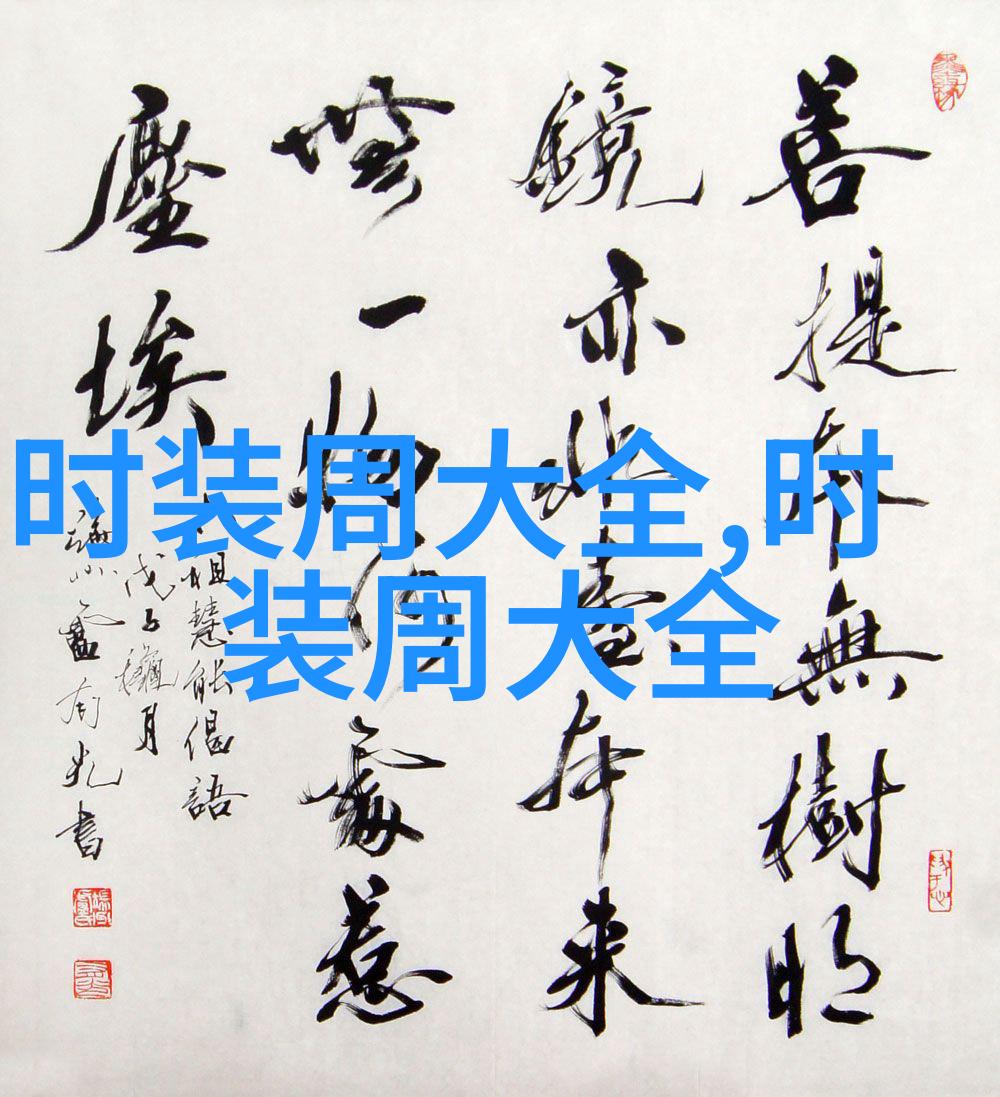 菩提本無樹明
鏡亦非臺本来
無一物何處惹
塵埃
六祖慧能偈語
戊子 月
有光書
时装周大全,时
装周大全